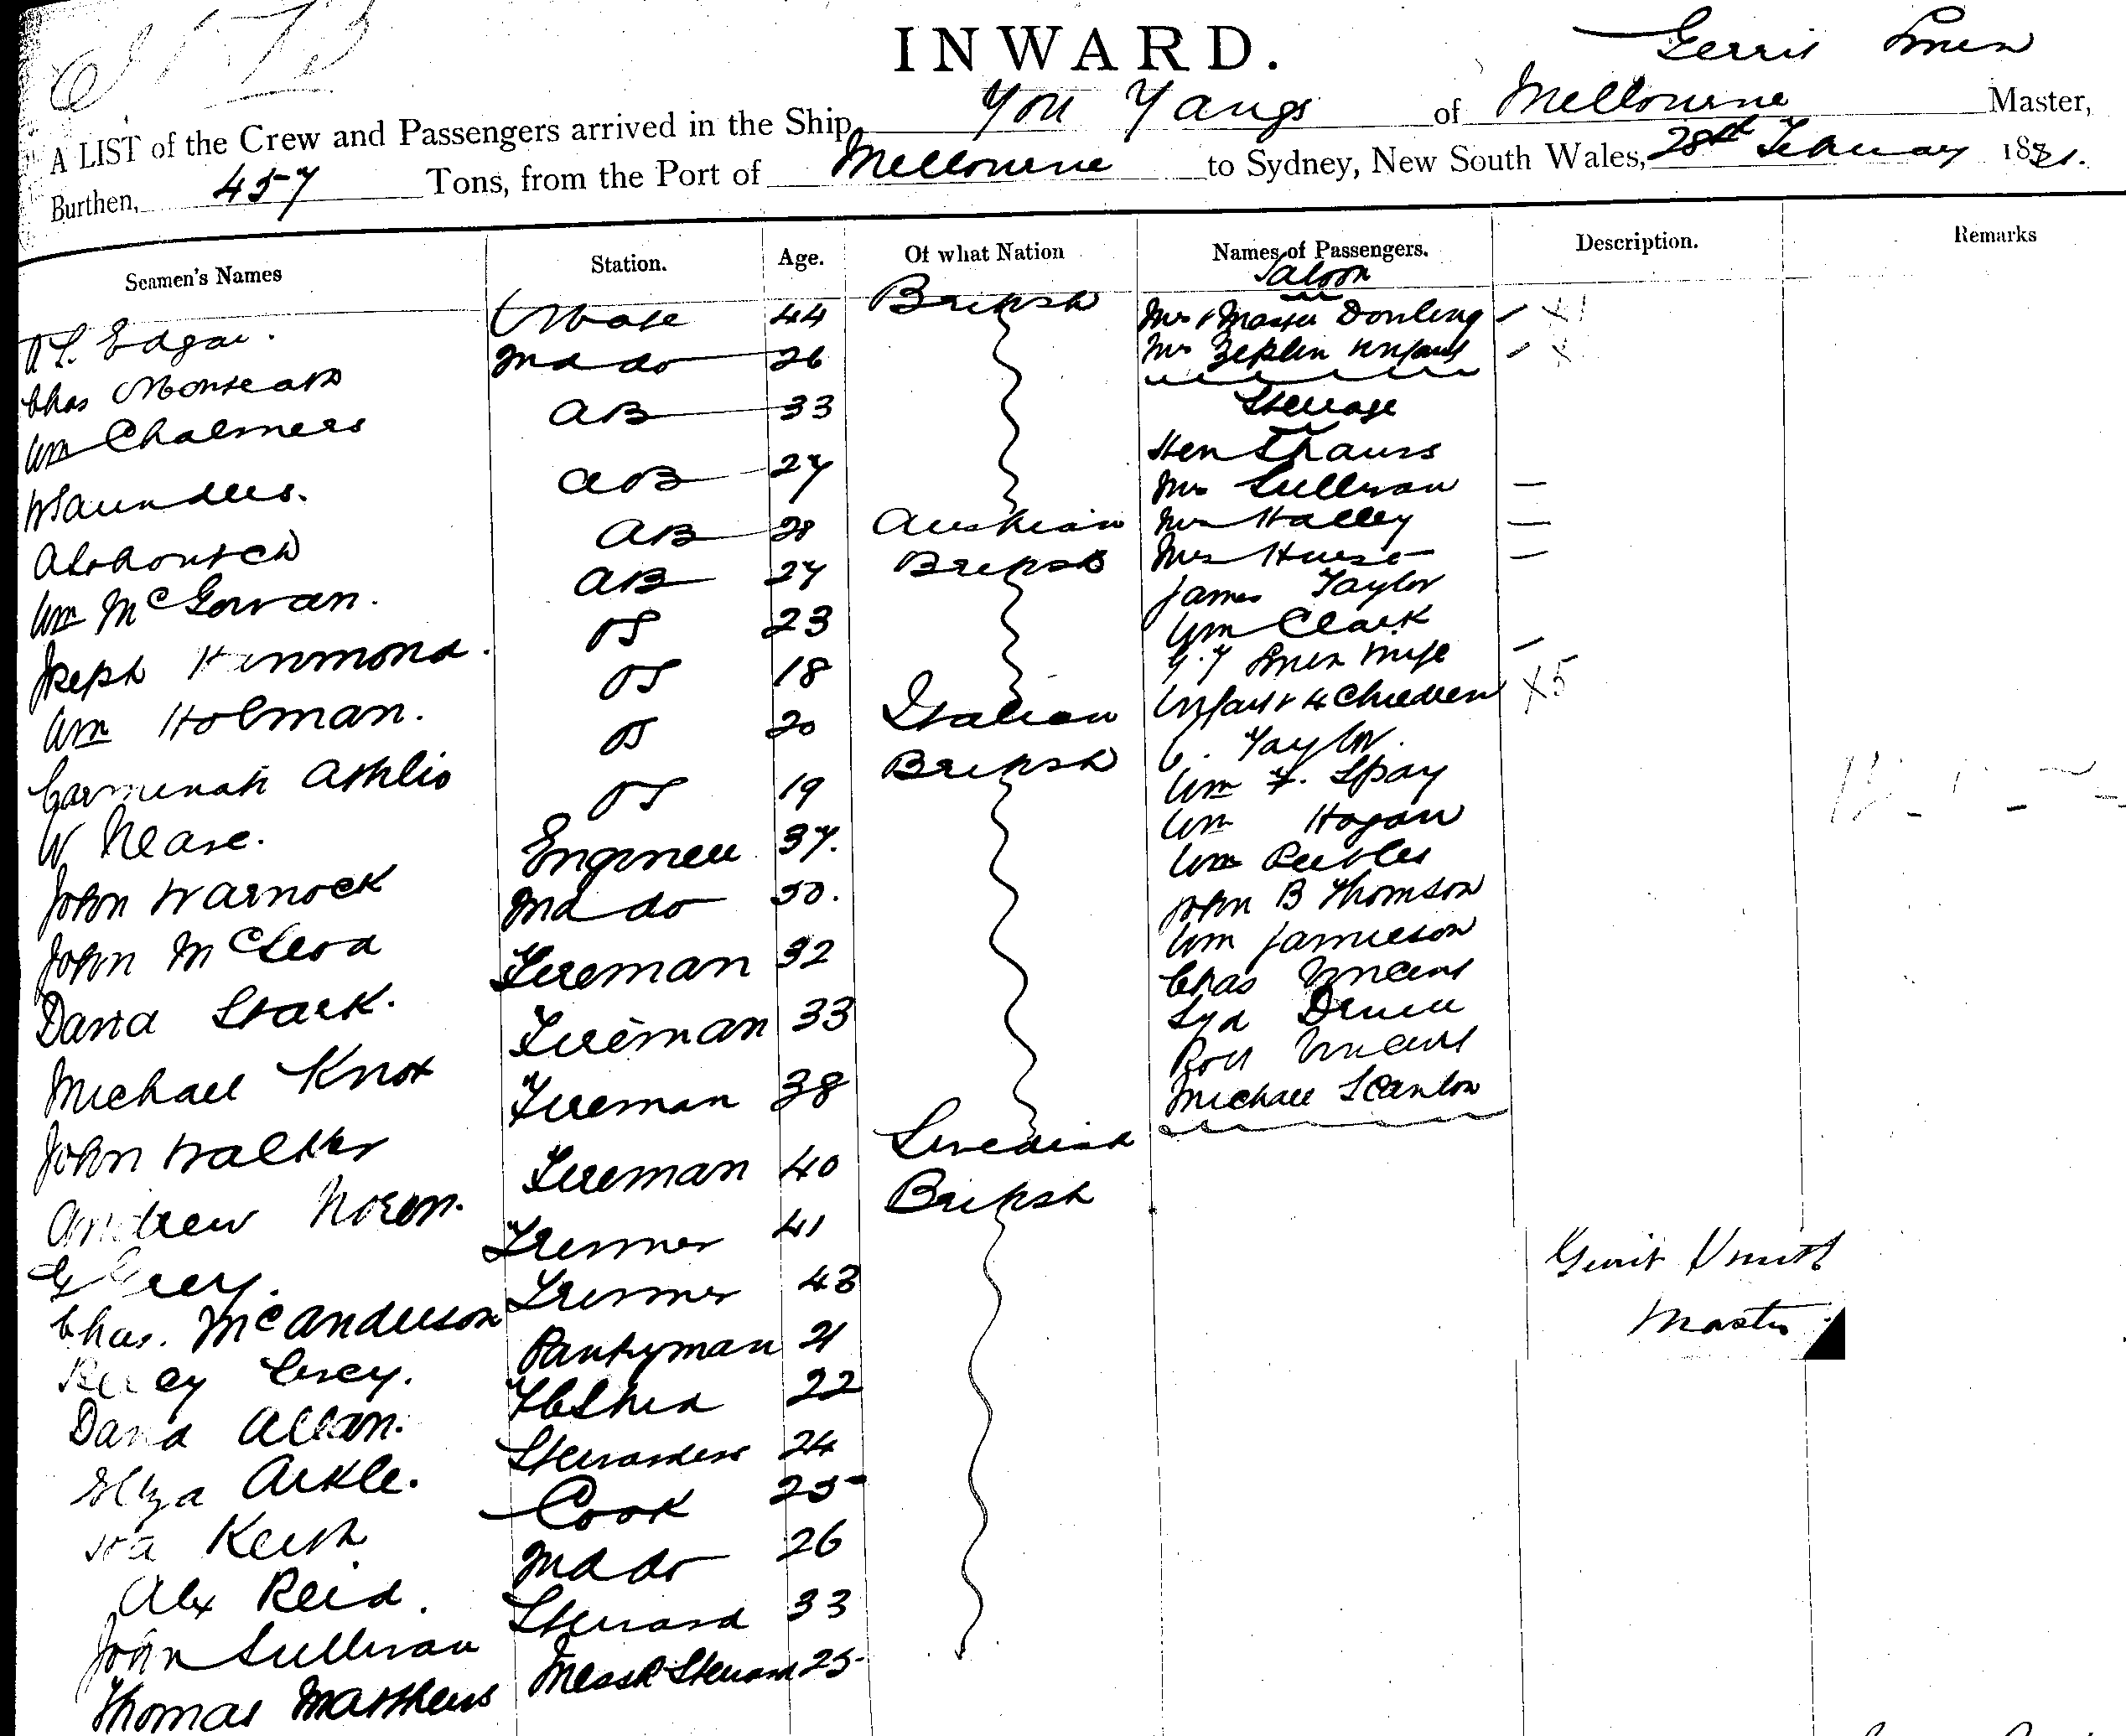 INWARD.
Gerrit Smith
A LIST of the Crew and Passengers arrived in the Ship You Yangs of Melbourne Master,
Burthen, 457 Tons, from the Port of Melbourne to Sydney, New South Wales, 28th February 1881.
Seamen's Names Station. Age. Of what Nation Names of Passengers. Description. Remarks
Saloon
Edgar. Mate 44 British Mrs & Master Dowling
Chas Monteath 2nd do 26 Mrs Zeplin Infant
Wm Chalmers AB 33 Steerage
W Saunders. AB 27 Hen Strauss
AB 28 Austrian Mrs Sullivan
Wm McGowan. AB 27 British Mrs Halley
Joseph Hammond. OS 23 Mrs Hurst
Wm Holman. OS 18 James Taylor
OS 20 Italian Wm Clark
W Nease. OS 19 British Smith Wife
John Warnock Engineer 37. Infant & 4 Children X5
John McLeod 2nd do 30. C. Taylor.
David Stark. Fireman 32 Wm F. Spay
Michael Knox Fireman 33 Wm Hogan
John Walker Fireman 38 Wm Peebles
Andrew Noren. Fireman 40 Swedish John B Thomson
G Grey. Trimmer 41 British Wm Jamieson
Chas. McAnderson Trimmer 43 Chas Vincent
Percy Grey. Pantryman 21 Syd Druce
David Allan. 22 Robt Vincent
Eliza Arkle. Stewardess 24 Michael Scanlon
Keith Cook 25
Alex Reid. 2nd do 26
John Sullivan Steward 33
Thomas Matthews Mess R Steward 25
Gerrit Smith
Master